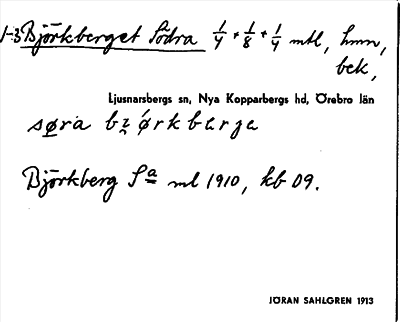 1-3 Björkberget Södra 1/4 + 1/8 + 1/4 mtl, hmn,
bek,
Ljusnarsbergs sn, Nya Kopparbergs hd, Örebro län
søra bʒørkbærge
Björkberg Sa ml 1910, kb 09.
JÖRAN SAHLGREN 1913